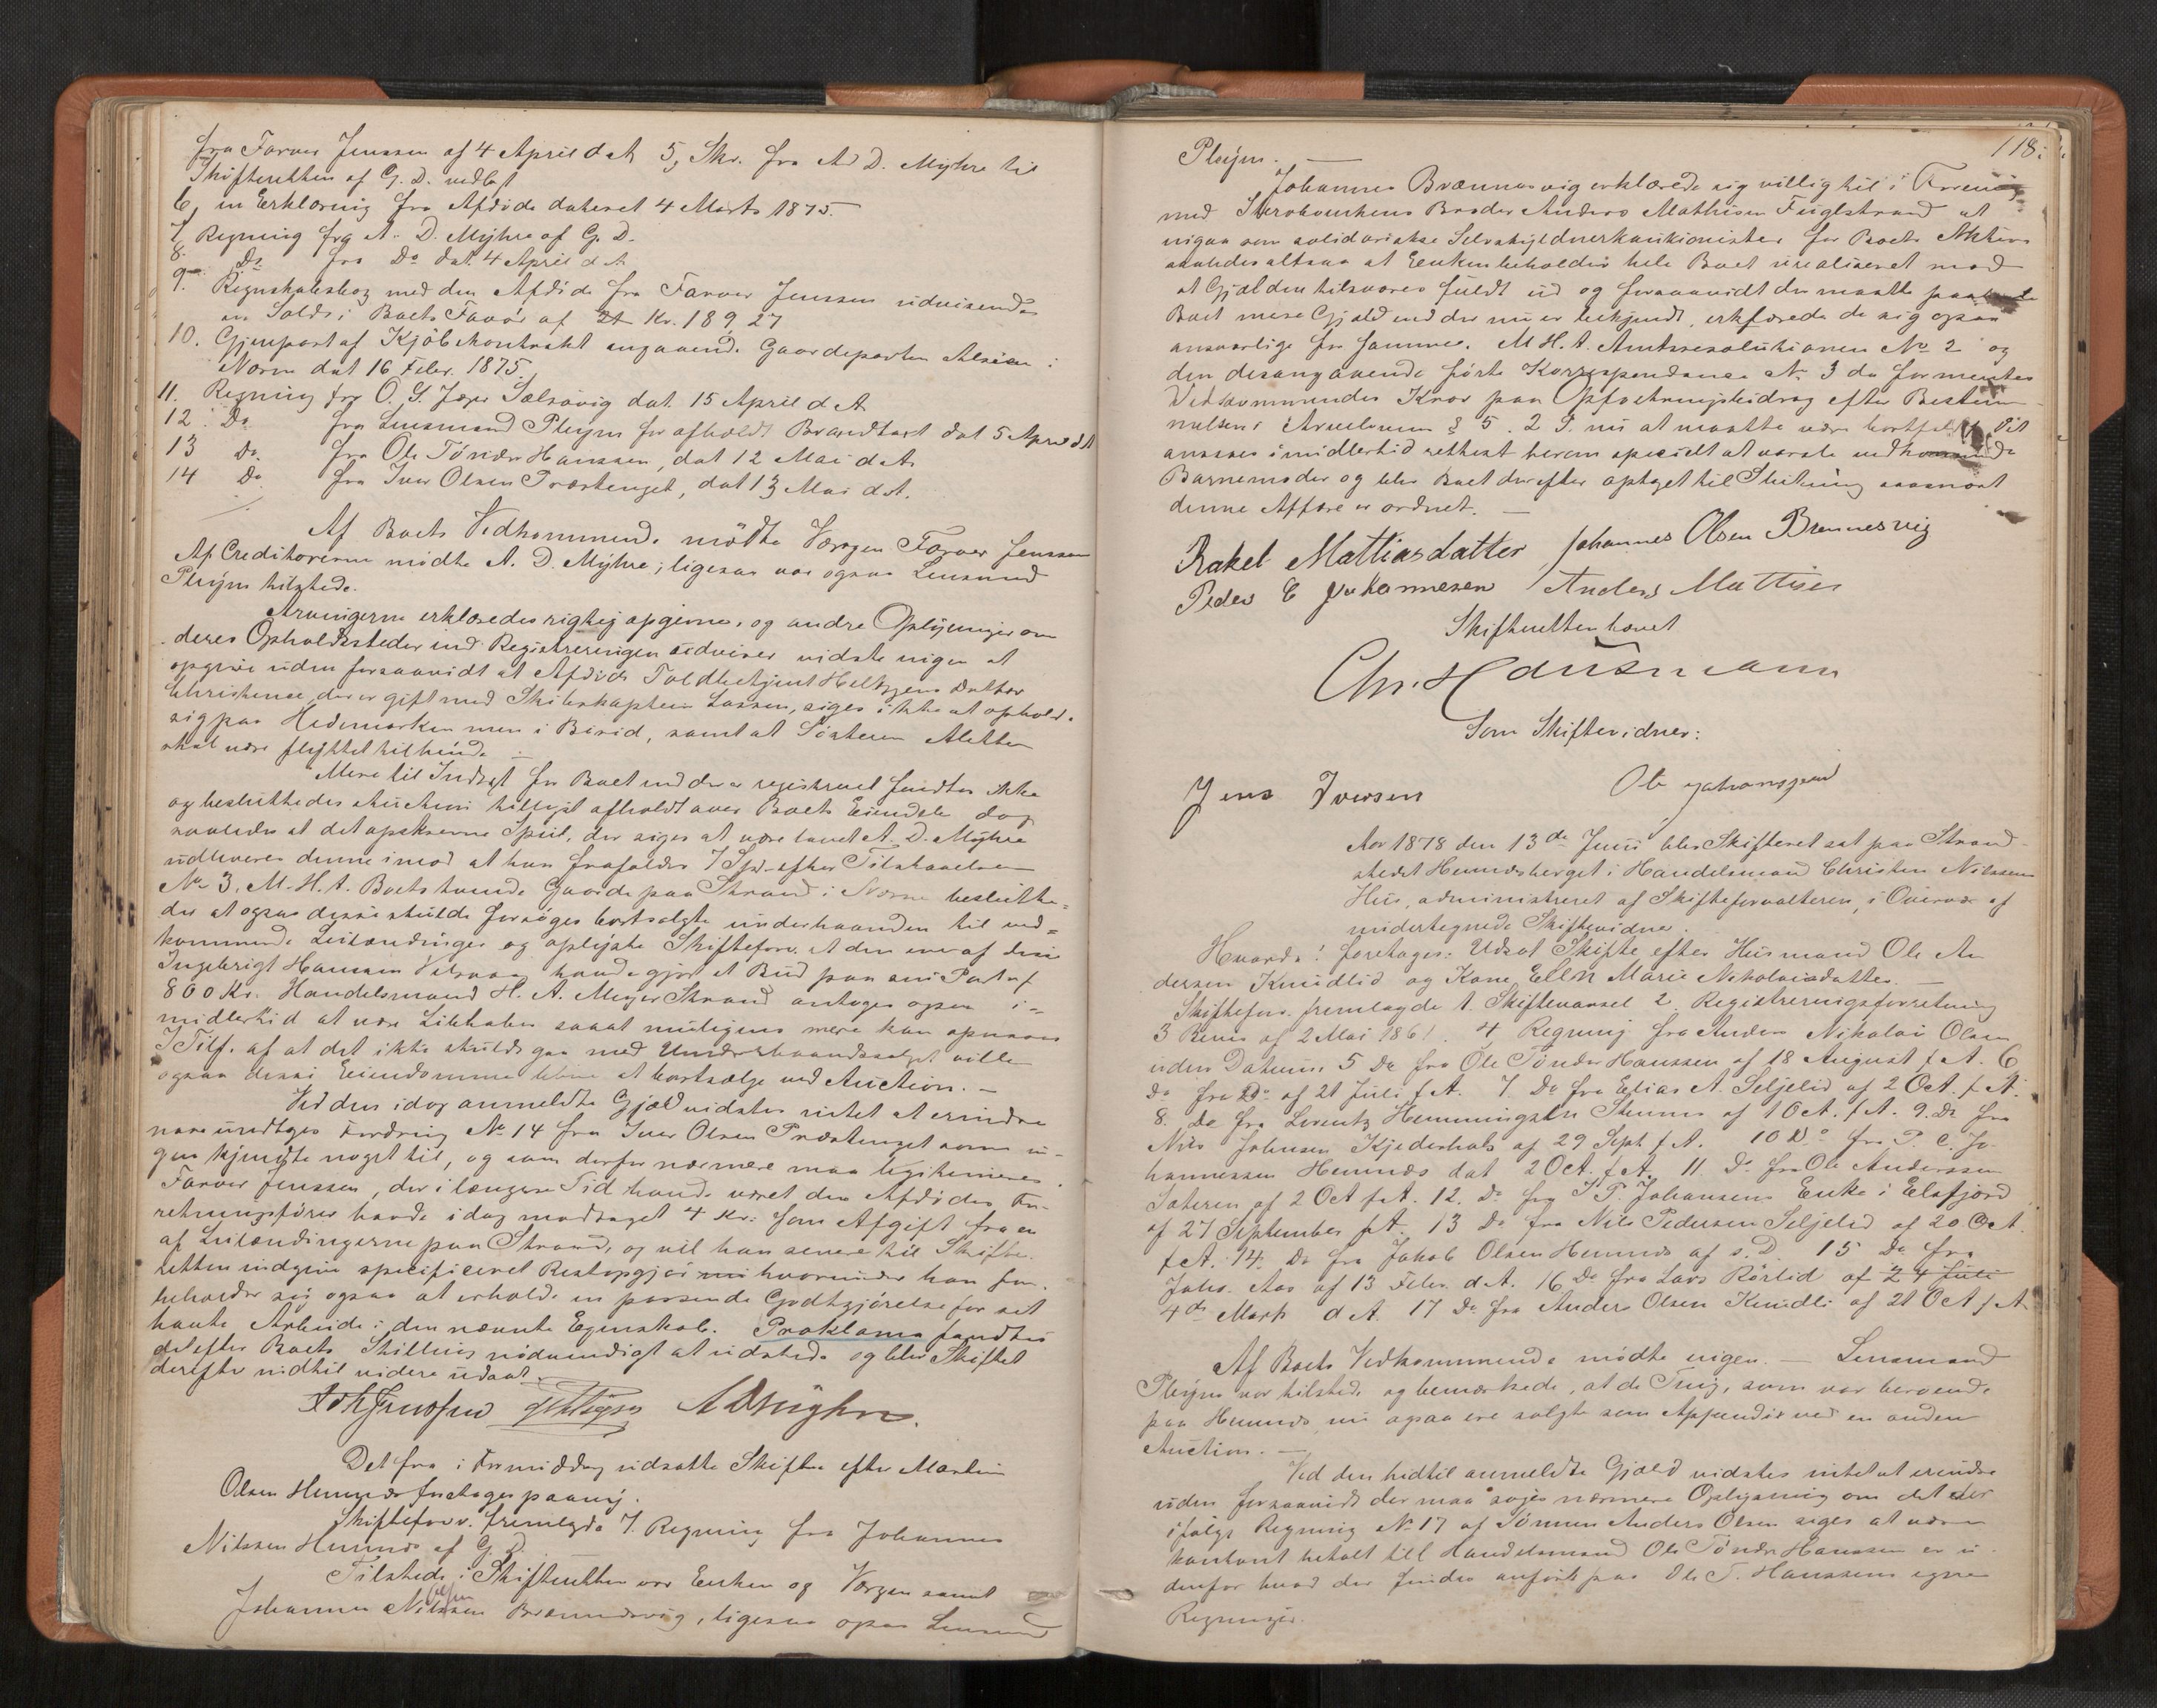 fra Farver Jenssen af 4 April d A 5, Skr. fra A D. Myhre til
Skifteretten af G. D. vedlagt
6, en Erklæring fra Afdøde dateret 4 Marts 1875.
7 Regning fra A. D. Myhre af G. D.
8. Do fra Do dat. 4 April d A
9. Regnskabsbog med den Afdøde fra Farver Jenssen udvisende
en Saldo i Boets Favør af Kr. 189, 27
10. Gjenpart af Kjøbekontrakt angaaende Gaardeparten i
Nærø dat 16 Febr. 1875.
11. Regning fra O. S. Sælsøvig dat. 15 April d A
12. Do fra Lensmand Pleym for afholdt Brandtaxt dat 5 April dA
13 Do. fra Ole Tønder Hanssen, dat 12 Mai d A
14 Do fra Iver Olsen Præstenget, dat 13 Mai d A.
Af Boets Vedkommende mødte Værgen Farver Jenssen
Af Creditorerne mødte A. D. Myhre; ligesaa var ogsaa Lensmand
Pleym tilstede.
Arvingerne erklæredes rigtig opgivne, og andre Oplysninger om
deres Opholdssteder end Registreringen udviser vidste ingen at
opgive uden forsaavidt at Afdøde Toldbetjent Datter
Christence, der er gift med Skibskaptein Lassen, siges ikke at opholde
sig paa Hedemarken men i Birid, samt at Søsteren Alette
skal være flyttet til hende.
Mere til Indtægt for Boet end der er registreret fandtes ikke
og besluttedes Auction tillyst afholdt over Boets Eiendele dog
saaledes at det opskrevne Speil, der siges at være laant A. D. Myhre
udleveres denne imod at han frafalder 7 Spd. efter Tilstaaelsen
No 3. M. H. t. Boets tvende Gaarde paa Strand i Nærøe beslutte=
des at ogsaa disse skulde forsøges bortsolgte underhaanden til ved=
kommende Leilændinger og oplyste Skifteforv. at den ene af disse
Ingebrigt Hanssen havde gjort et Bud paa sin Part af
800 Kr. Handelsmand H. A. Meyer Strand antages ogsaa i=
midlertid at være Liebhaber saaat muligens mere kan opnaaes
I Tilf. af at det ikke skulde gaa med Underhaandssalget ville
ogsaa disse Eiendomme blive at bortsælge ved Auction. -
Ved den idag anmeldte Gjæld vidstes intet at erindre
naar undtages Fordring No 14 fra Iver Olsen Præstenget som in-
gen kjendte noget til, og som derfor nærmere maa legitimeres.
Farver Jenssen, der i længere Tid havde været den Afdødes For-
retningsfører havde idag modtaget 4 Kr. som Afgift fra en
af Leilændingerne paa Strand, og vil han senere til Skifte-
retten indgive specificeret Restopgjør hvorunder han for-
beholder sig ogsaa at erholde en passende Godtgjørelse for sit
havte Arbeide i den nævnte Egenskab. Proklama fandtes
del efter Boets Stilling nødvendigt at udstede og blev Skiftet
derefter indtil videre udsat.
A D Myhre.
Det fra i Formiddag udsatte Skifte efter Martin
Olsen Hemnæs foretages paany.
Skifteforv. fremlagde 7. Regning fra Johannes
Nilssen Hemnæs af G. D.
Tilstede i Skifteretten var Enken og Værgen samt
Johannes Nilssen Olsen Brennesvig, ligesaa ogsaa Lensmand
118.
Pleym. -
Johannes Brænnesvig erklærede sig villig til i Forening
med Stervboenkens Broder Anders Mathisen Fuglstrand at
indgaa som solidariske Selvskyldnerkautionister for Boets Aktiva
saaledes altsaa at Enken beholder hele Boet urealiseret mod
at Gjælden tilsvares fuldt ud og forsaavidt der maatte paahvile
Boet mere Gjæld end der nu er bekjendt, erklærede de sig ogsaa
ansvarlige for samme. M. H. t. Amtsresolutionen No 2 og
den desangaaende førte Korrespondance No 3 da formentes
Vedkommendes Krav paa Opfostringsbidrag efter Bestem-
melsen i Arveloven § 5. 2 P. nu at maatte være bortfaldt. Det
ansees imidlertid rettest herom specielt at varsle vedkommende
Barnemoder og blev Boet derefter optaget til Slutning saasnart
denne Affære er ordnet. -
Rakel Mattiasdatter Johannes Olsen Brennesvig
Peder E Johannesen Anders Mattisen
Skifteretten hævet
Chr. Hausmann
Som Skiftevidner:
Jens Iversen Ole
Aar 1878 den 13de Juni blev Skifteret sat paa Strand-
stedet Hemnæsberget i Handelsmand Christen Nilssens
Hus, administreret af Skifteforvalteren, i Overvær af
undertegnede Skiftevidner.
Hvorda! foretages: Udsat Skifte efter Husmand Ole An-
dersen Knudlid og Kone Ellen Marie Nikolaisdatter. -
Skifteforv. fremlagde 1. Skiftevarsel 2, Registreringsforretning
3 Bevis af 2 Mai 1861. 4 Regning fra Anders Nikolai Olsen
uden Datum. 5 Do fra Ole Tønder Hanssen af 18 August f A. 6
Do fra Do af 21 Juli f A. 7. Do fra Elias A. Seljelid af 2 Oct. f A.
8. Do fra Lorentz Hemmingsen Stennes af 1 Oct. f A. 9. Do fra
Nils Johnsen Kjederhals af 29 Sept f A. 10 Do fra P. C. Jo-
hannessen Hemnæs dat 2 Oct. f A. 11. Do fra Ole Anderssen
Sæteren af 2 Oct f A. 12. Do fra I P. Johansens Enke i Elsfjord
af 27 September f A. 13 Do fra Nils Pedersen Seljelid af 20 Oct
f A. 14. Do fra Jakob Olsen Hemnæs af s. D. 15 Do fra
Johs. Aas af 13 Febr. d A. 16 Do fra Lars Rørlid af 24 Juli
4de Marts d A. 17 Do fra Anders Olsen Knudli af 21 Oct f A
Af Boets Vedkommende mødte ingen. - Lensmand
Pleym var tilstede og bemærkede, at de Ting, som var beroende
paa Hemnæs nu ogsaa ere solgte som Appendix ved en anden
Auction. -
Ved den hidtil anmeldte Gjæld vidstes intet at erindre
uden forsaavidt der maa søges nærmere Oplysning om det der
ifølge Regning No 17 af Sønnen Anders Olsen siges at være
kontant betalt till Handelsmand Ole Tønder Hanssen er u-
denfor hvad der findes anført paa Ole T. Hanssens egne
Regninger.